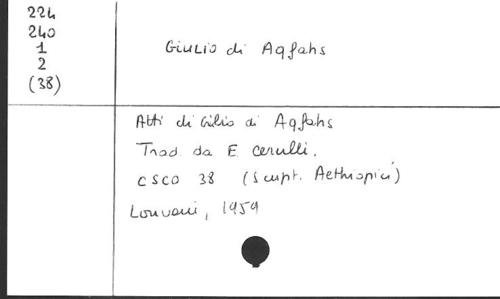 224
240
1
2
(38)
Giulio di Aqfahs
Atti di Giulio di Aqfahs
Trad. da E. Cerulli.
CSCO 38 (Script. Aethiopici)
Louvain, 1959